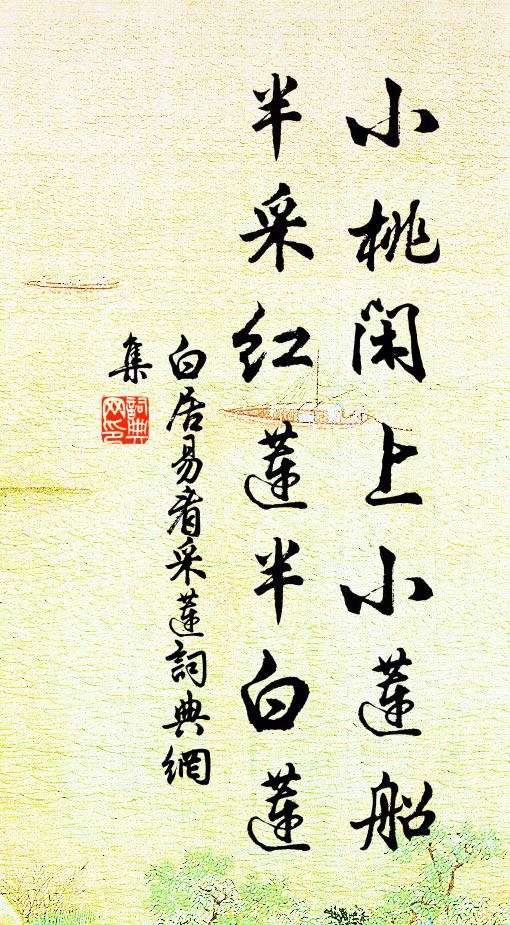 小桃闲上小莲船
半采红莲半白莲
白居易看采莲詞典網
集
詞典网印